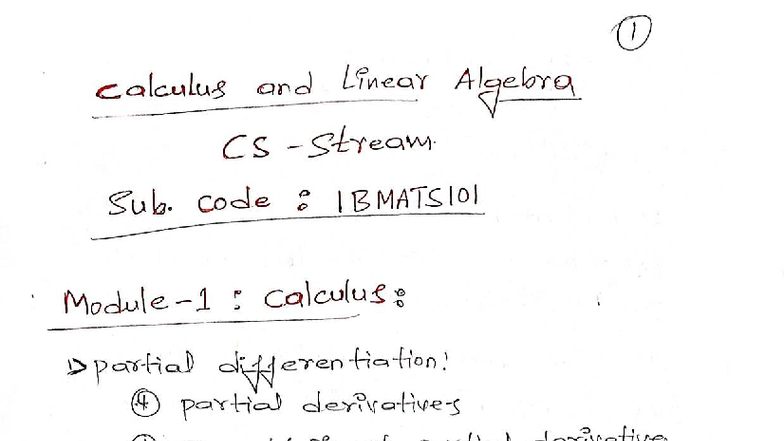 ①
Calculus and Linear Algebra
CS - Stream
Sub. code : 1BMATS101
Module-1 : Calculus:
1> partial differentiation:
④ partial derivatives
partial derivative